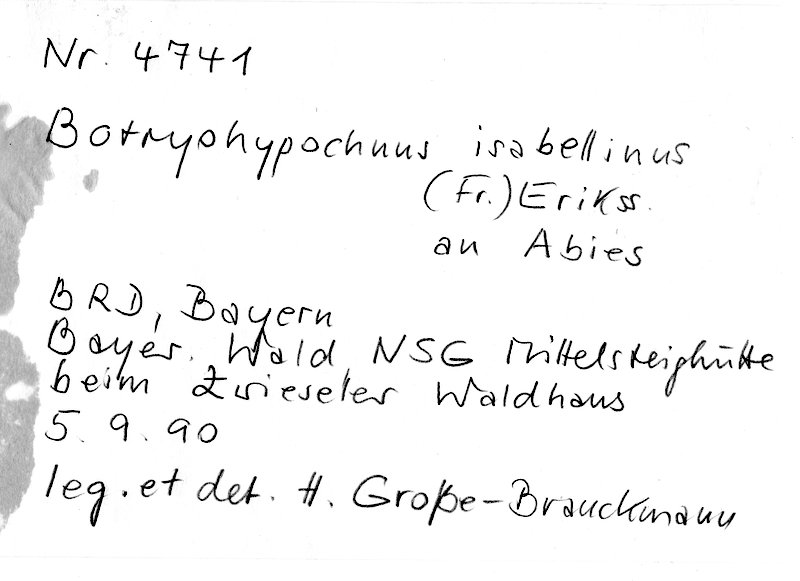 Nr. 4741
Botryohypochnus isabellinus
(Fr.) Erikss.
an Abies
BRD, Bayern
Bayer. Wald, NSG Mittelsteighütte
beim Zwieseler Waldhaus
5. 9. 90
leg. et det. H. Große-Brauckmann